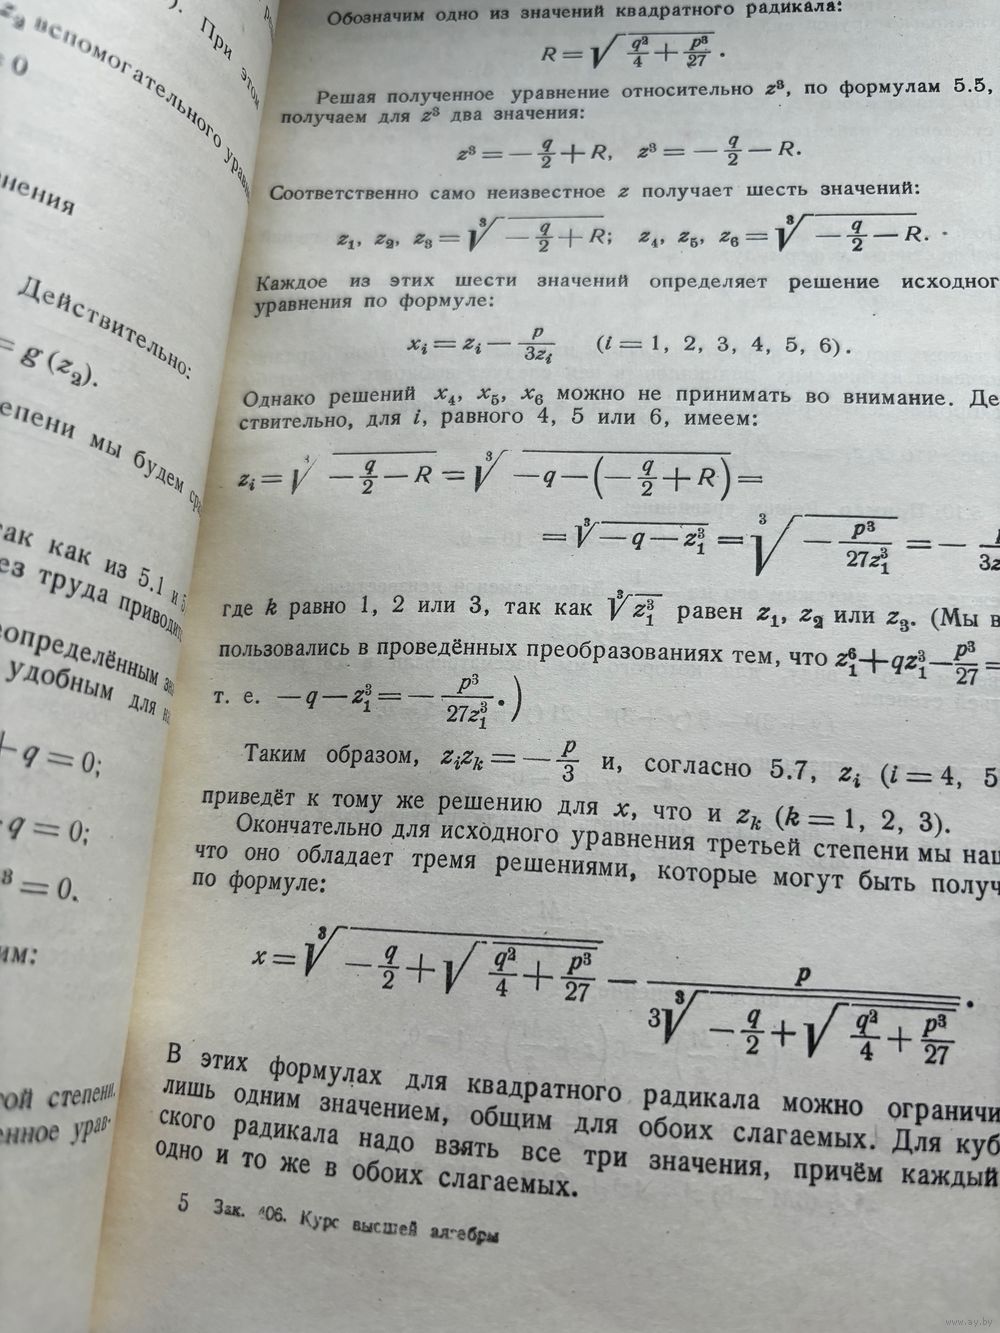 ). При этом
z₂ вспомогательного
= 0
нения
Действительно:
= g (z₂).
степени мы будем
так как из 5.1 и 5
ез труда
еопределённым
удобным для
+ q = 0;
q = 0;
³ = 0.
им:
ой степени.
енное урав-
Обозначим одно из значений квадратного радикала:
R = √(q²/4 + p³/27).
Решая полученное уравнение относительно z³, по формулам 5.5,
получаем для z³ два значения:
z³ = − q/2 + R, z³ = − q/2 − R.
Соответственно само неизвестное z получает шесть значений:
z₁, z₂, z₃ = ∛(− q/2 + R); z₄, z₅, z₆ = ∛(− q/2 − R).
Каждое из этих шести значений определяет решение исходног
уравнения по формуле:
xᵢ = zᵢ − p/3zᵢ (i = 1, 2, 3, 4, 5, 6).
Однако решений x₄, x₅, x₆ можно не принимать во внимание. Де
ствительно, для i, равного 4, 5 или 6, имеем:
zᵢ = ∛(− q/2 − R) = ∛(−q − (− q/2 + R)) =
= ∛(−q − z₁³) = ∛(− p³/27z₁³) = −
где k равно 1, 2 или 3, так как ∛z₁³ равен z₁, z₂ или z₃. (Мы в
пользовались в проведённых преобразованиях тем, что z₁⁶ + qz₁³ − p³/27 =
т. е. −q − z₁³ = − p³/27z₁³.)
Таким образом, zᵢzₖ = − p/3 и, согласно 5.7, zᵢ (i = 4, 5
приведёт к тому же решению для x, что и zₖ (k = 1, 2, 3).
Окончательно для исходного уравнения третьей степени мы наш
что оно обладает тремя решениями, которые могут быть получ
по формуле:
x = ∛(− q/2 + √(q²/4 + p³/27)) − p/(3∛(− q/2 + √(q²/4 + p³/27))).
В этих формулах для квадратного радикала можно ограничи
лишь одним значением, общим для обоих слагаемых. Для куб
ского радикала надо взять все три значения, причём каждый
одно и то же в обоих слагаемых.
5 Зак. 06. Курс высшей алгебры
www.ay.by